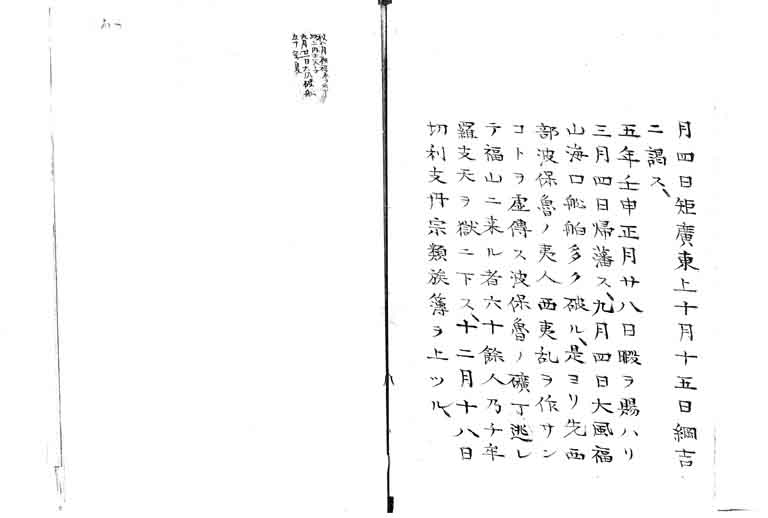 月四日矩廣東上十月十五日綱吉
ニ謁ス、
五年壬申正月廿八日暇ヲ賜ハリ
三月四日帰藩ス、九月四日大風福
山海口舩舶多ク破ル、是ヨリ先西
部波保魯ノ夷人西夷乱ヲ作サン
コトヲ虚傳ス波保魯ノ礦丁逃レ
テ福山ニ来ル者六十餘人乃チ牟
羅支天ヲ獄ニ下ス、十二月十八日
切利支丹宗類族簿ヲ上ツル、